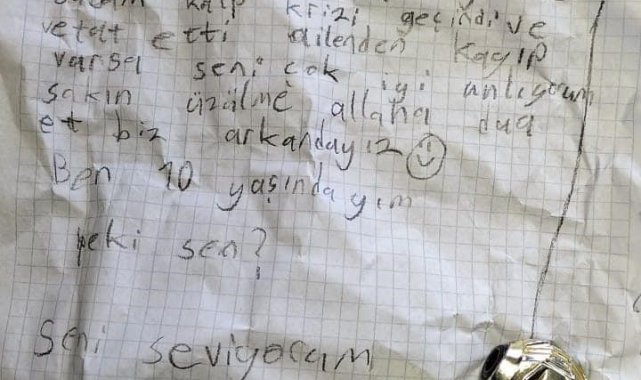 kalp krizi geçirdi ve
vefat etti ailenden kayıp
varsa seni çok iyi anlıyorum
sakın üzülme allaha dua
et biz arkandayız
Ben 10 yaşındayım
peki sen?
Seni seviyorum